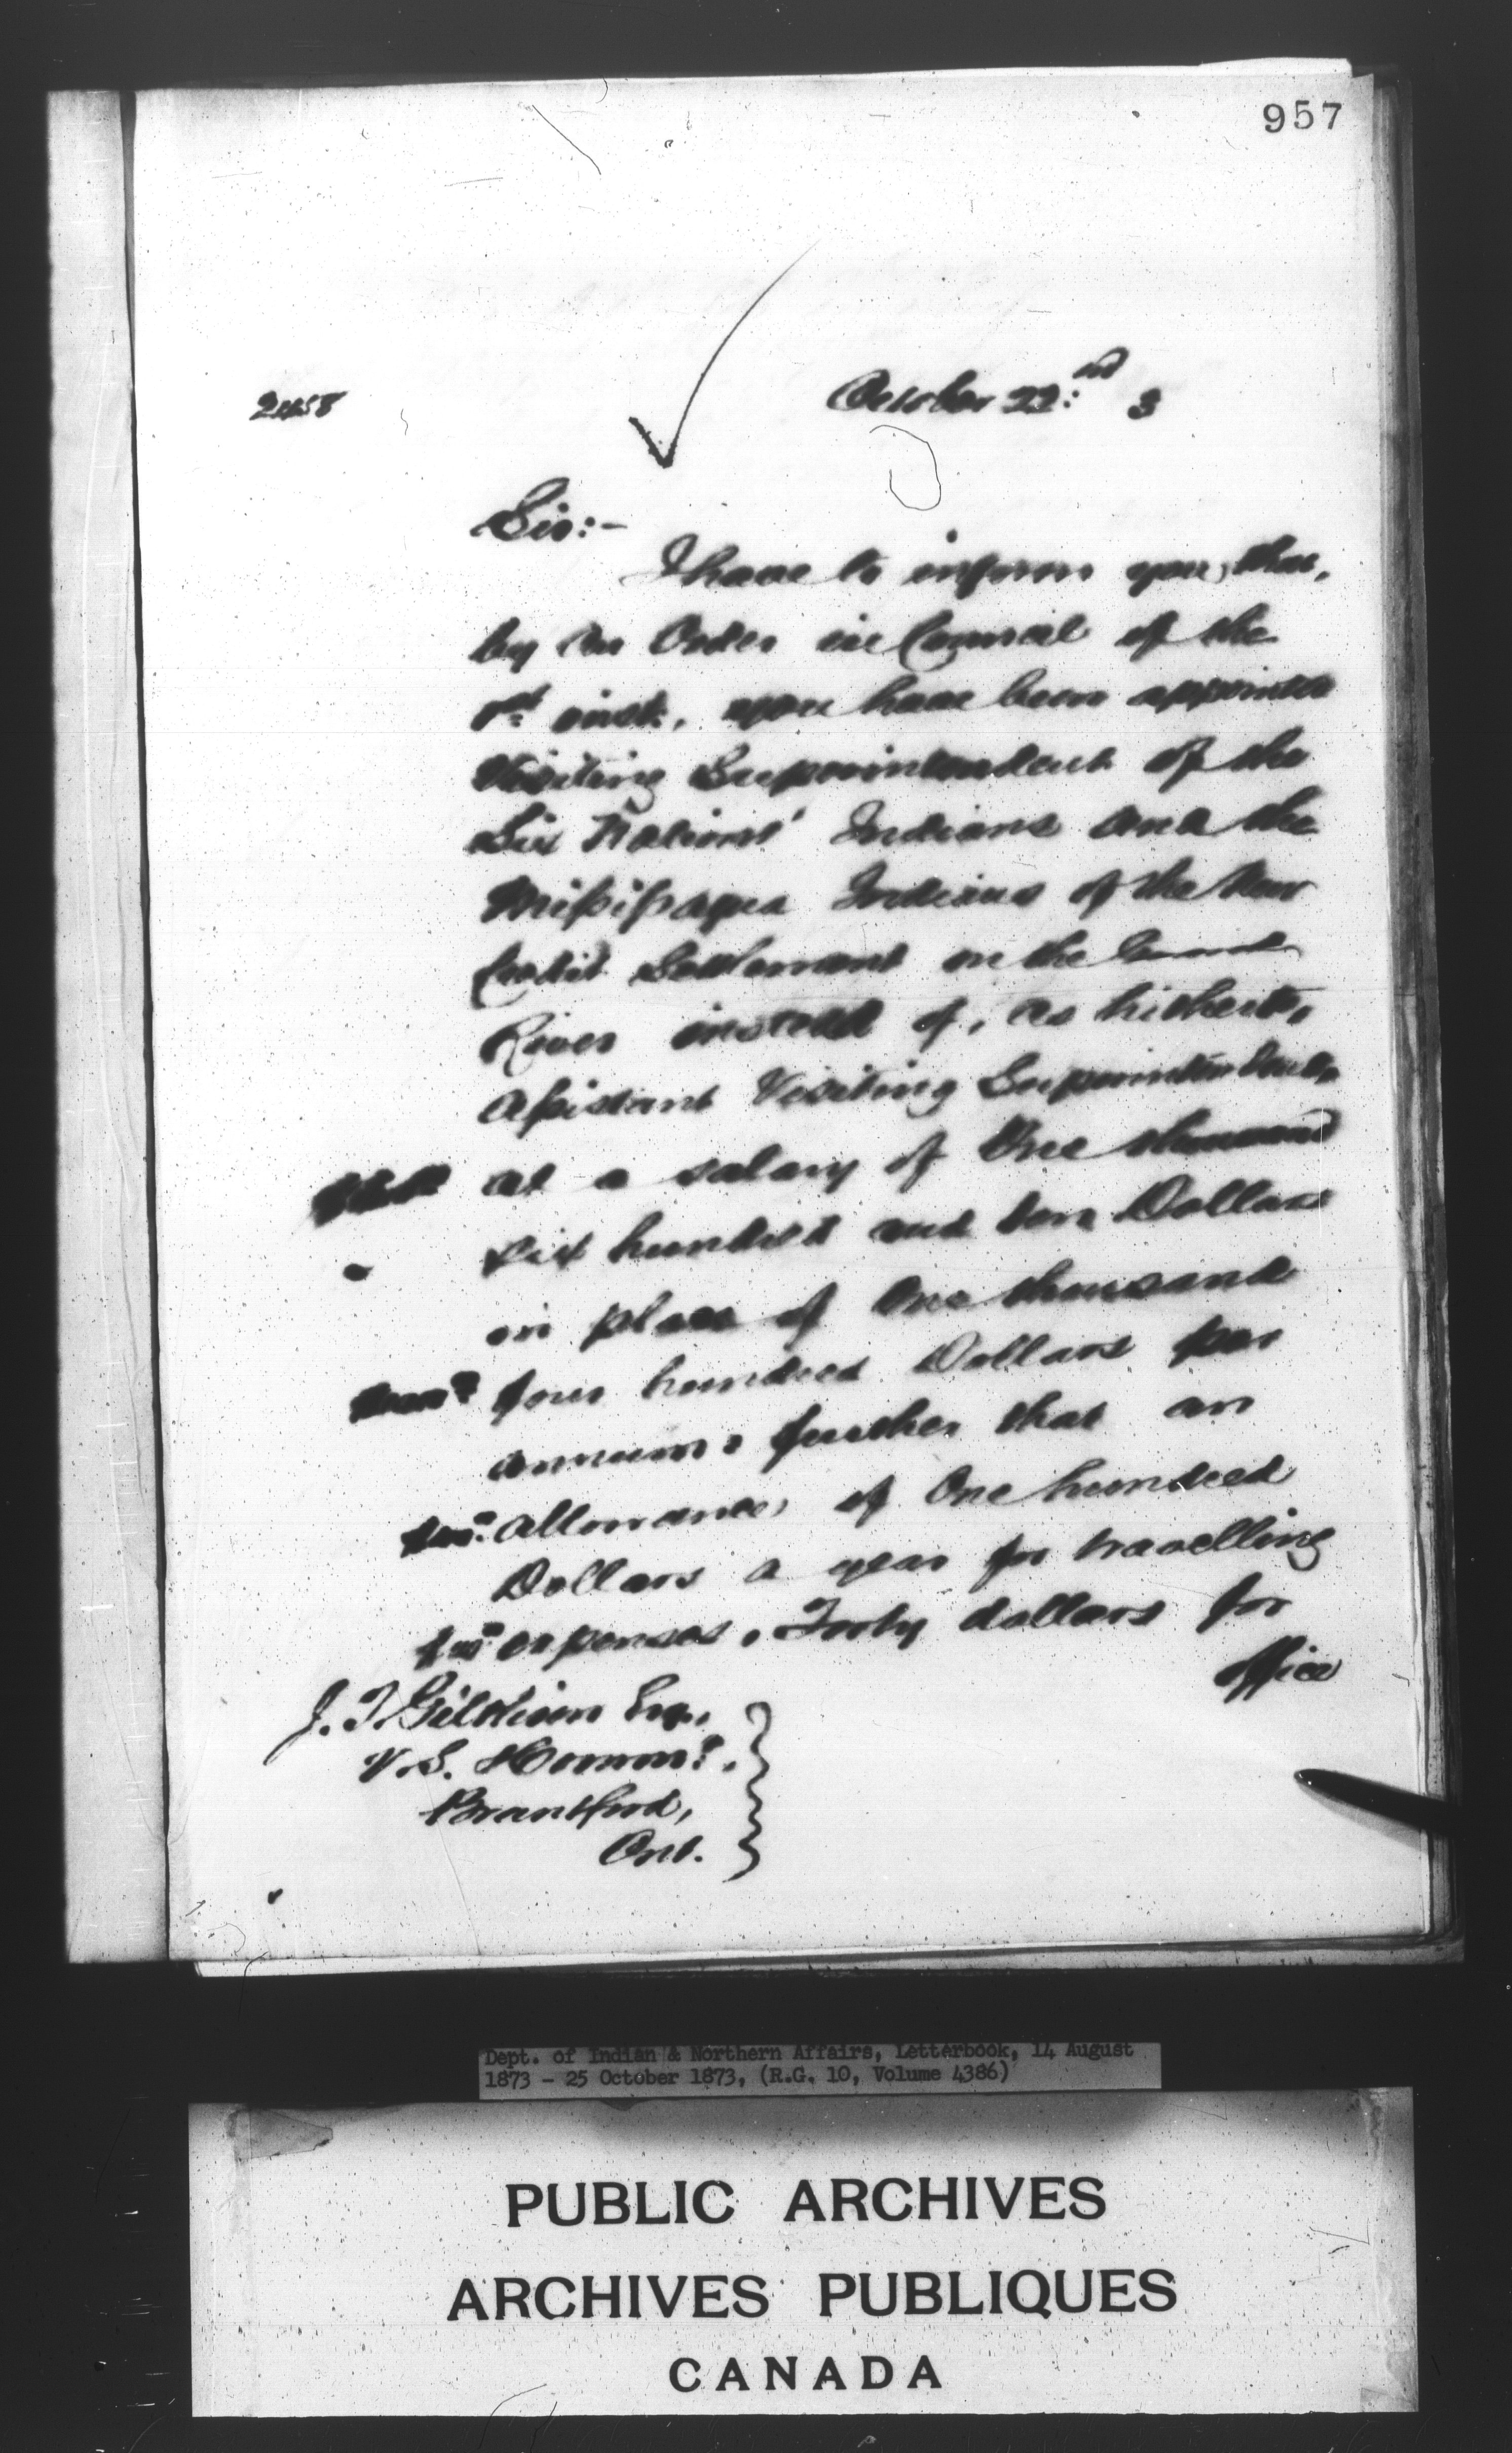 957
2458
October 22:nd 3
Sir:-
I have to inform you, that,
by an Order in Council of the
1st inst., you have been appointed
Visiting Superintendent of the
Six Nations' Indians and the
Missisagua Indians of the New
Credit Settlement on the Grand
River instead of, as hitherto,
Assistant Visiting Superintendent,
at a salary of One thousand
six hundred and ten Dollars
in place of One thousand
four hundred Dollars per
annum, further that an
allowance, of One hundred
Dollars a year for travelling
expenses, Forty dollars for
office
J. T. Gilkison Esq.,
V. S. & Commr.,
Brantford,
Ont.
Dept. of Indian & Northern Affairs, Letterbook, 14 August
1873 - 25 October 1873, (R.G. 10, Volume 4386)
PUBLIC ARCHIVES
ARCHIVES PUBLIQUES
CANADA